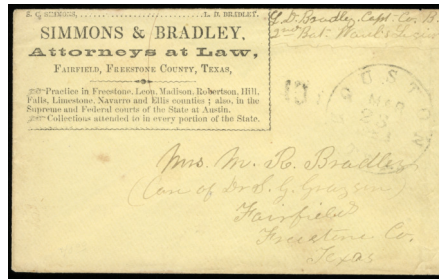 S. C. SIMMONS, L. D. BRADLEY.
SIMMONS & BRADLEY,
Attorneys at Law,
FAIRFIELD, FREESTONE COUNTY, TEXAS,
Practice in Freestone, Leon, Madison, Robertson, Hill,
Falls, Limestone, Navarro and Ellis counties ; also, in the
Supreme and Federal courts of the State at Austin.
Collections attended to in every portion of the State.
L. D. Bradley, Capt. Co. B
2nd Bat.
MAR
Mrs. M. R. Bradley
Care of Dr S. G.
Fairfield
Freestone Co.
Texas